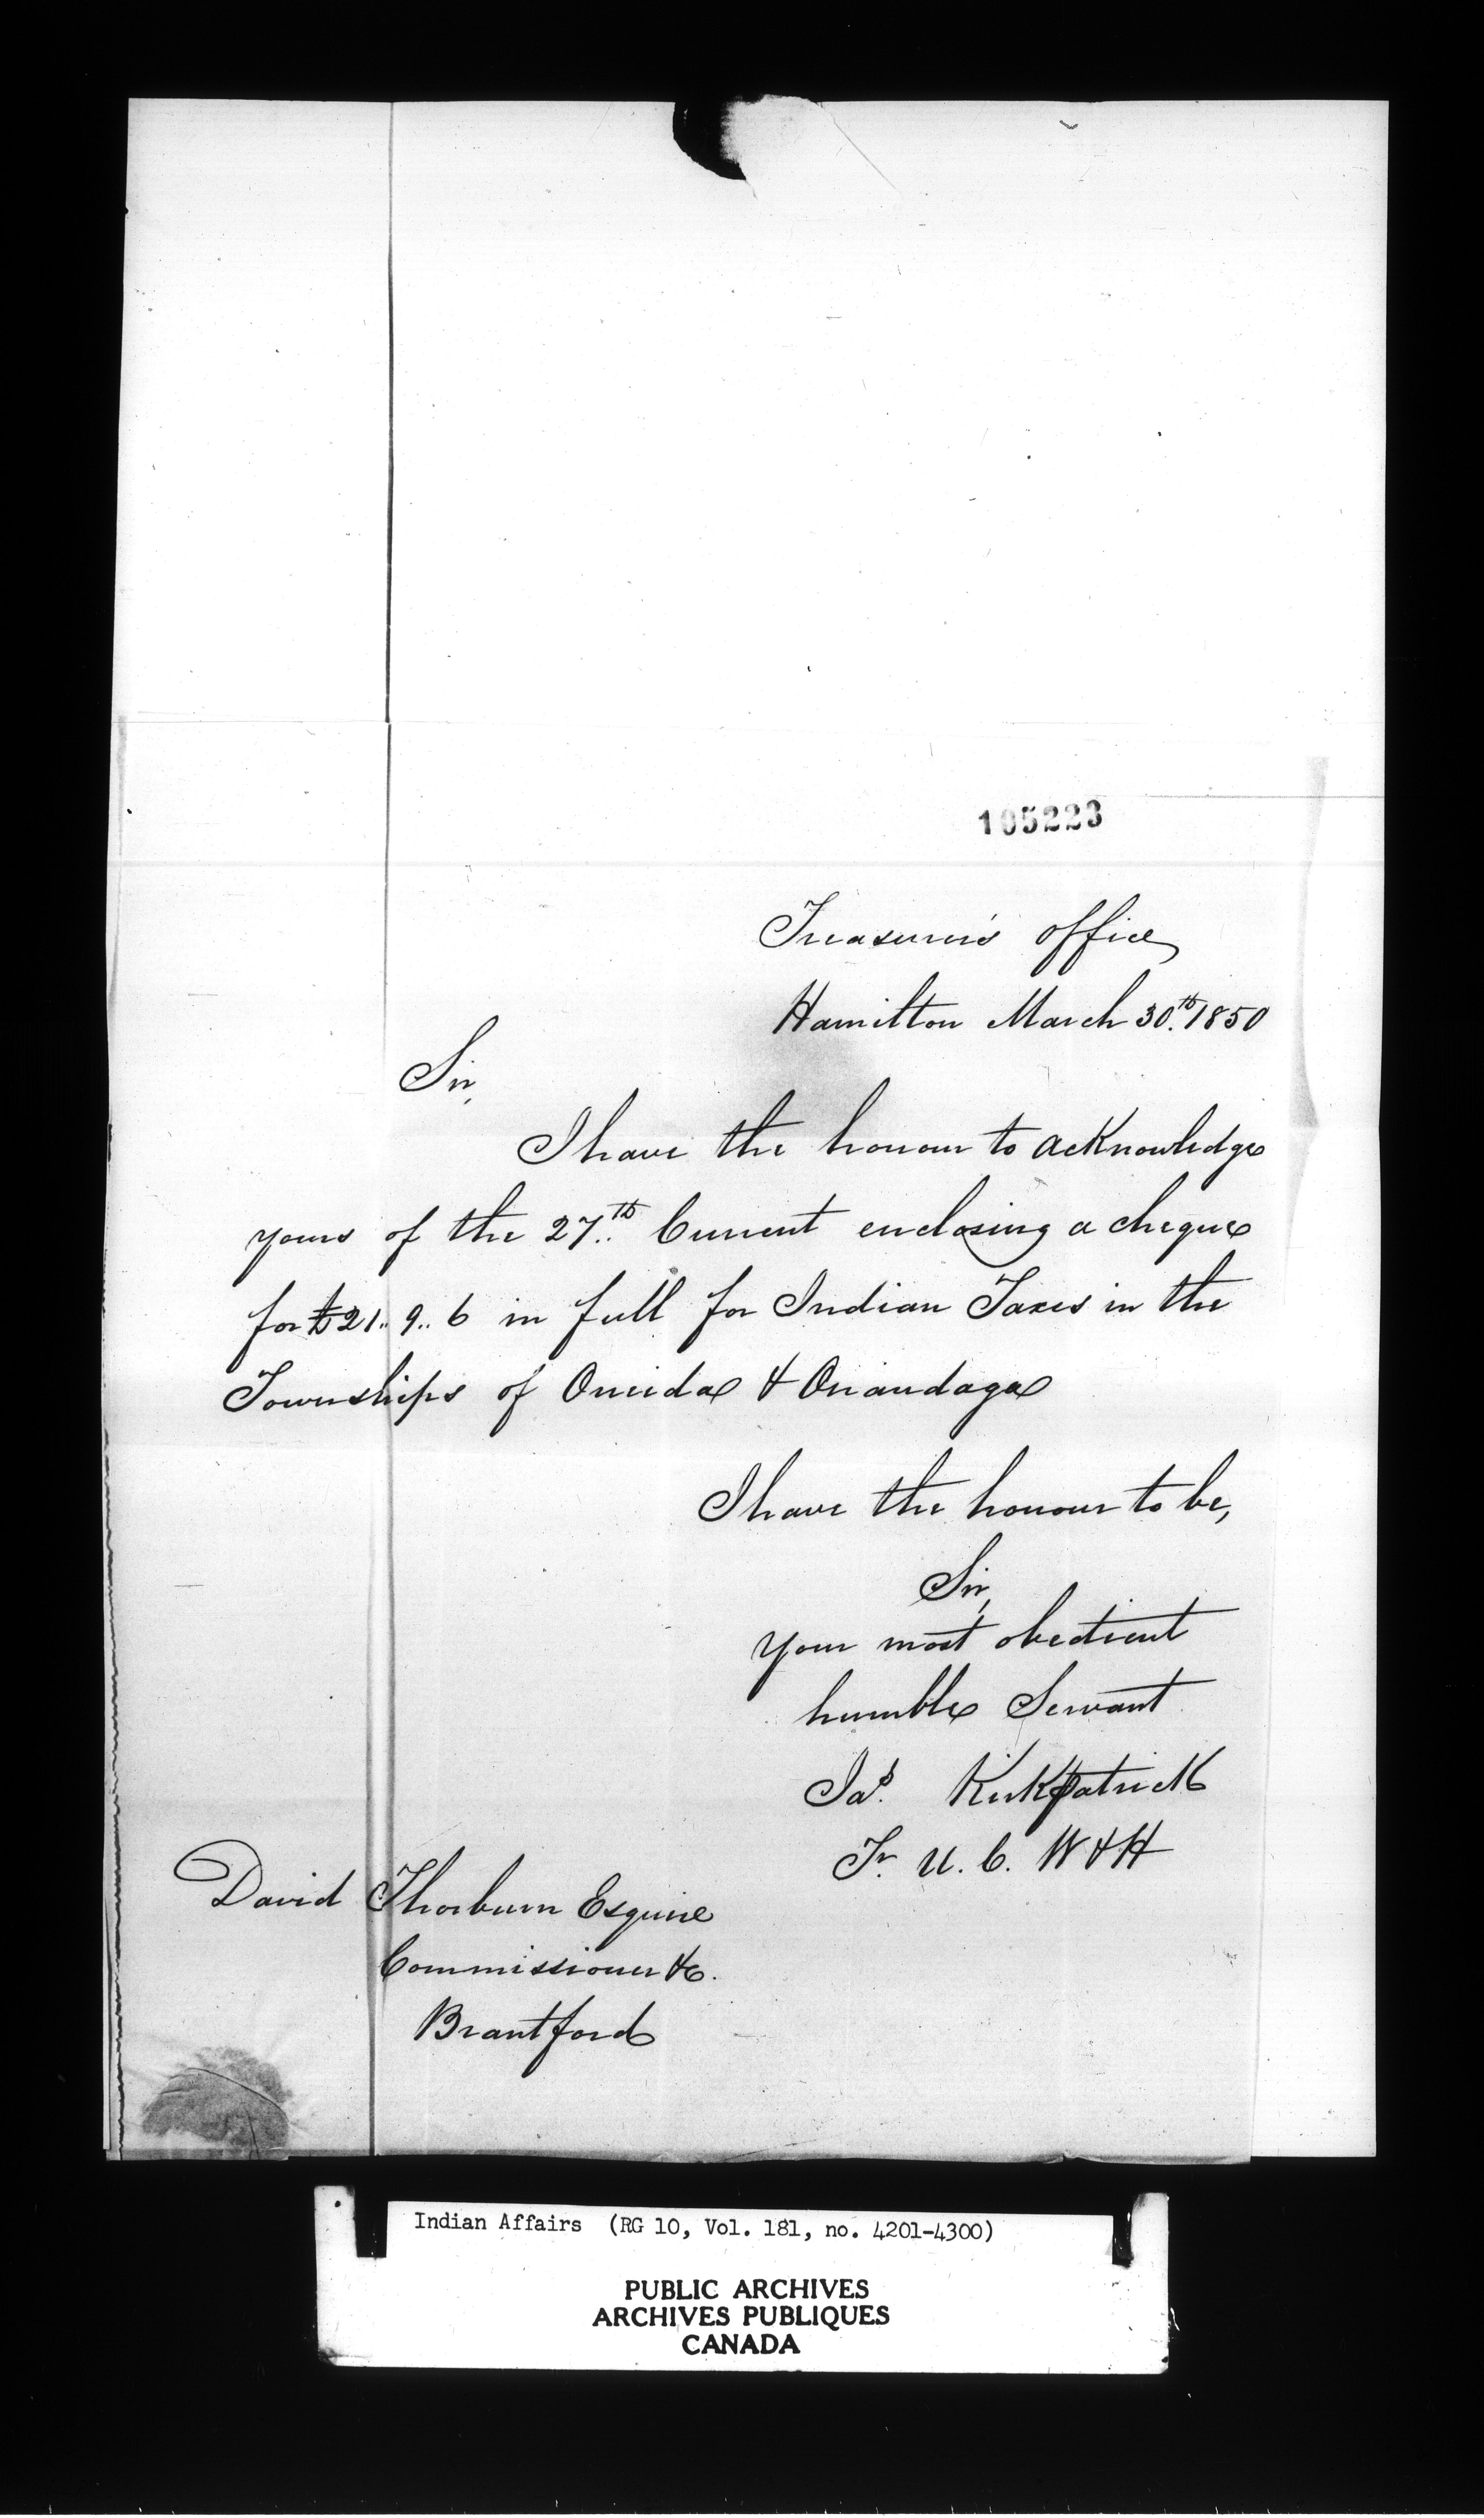 105223
Treasurer's office
Hamilton March 30th. 1850
Sir,
I have the honour to acknowledge
yours of the 27th.. Current enclosing a cheque
for £21.. 9.. 6 in full for Indian Taxes in the
Townships of Oneida & Onandaga
I have the honour to be,
Sir,
your most obedient
humble Servant
Jas. Kirkpatrick
Tr. U. C. W & H
David Thorburn Esquire
Commissioner &c.
Brantford
Indian Affairs (RG 10, Vol. 181, no. 4201-4300)
PUBLIC ARCHIVES
ARCHIVES PUBLIQUES
CANADA